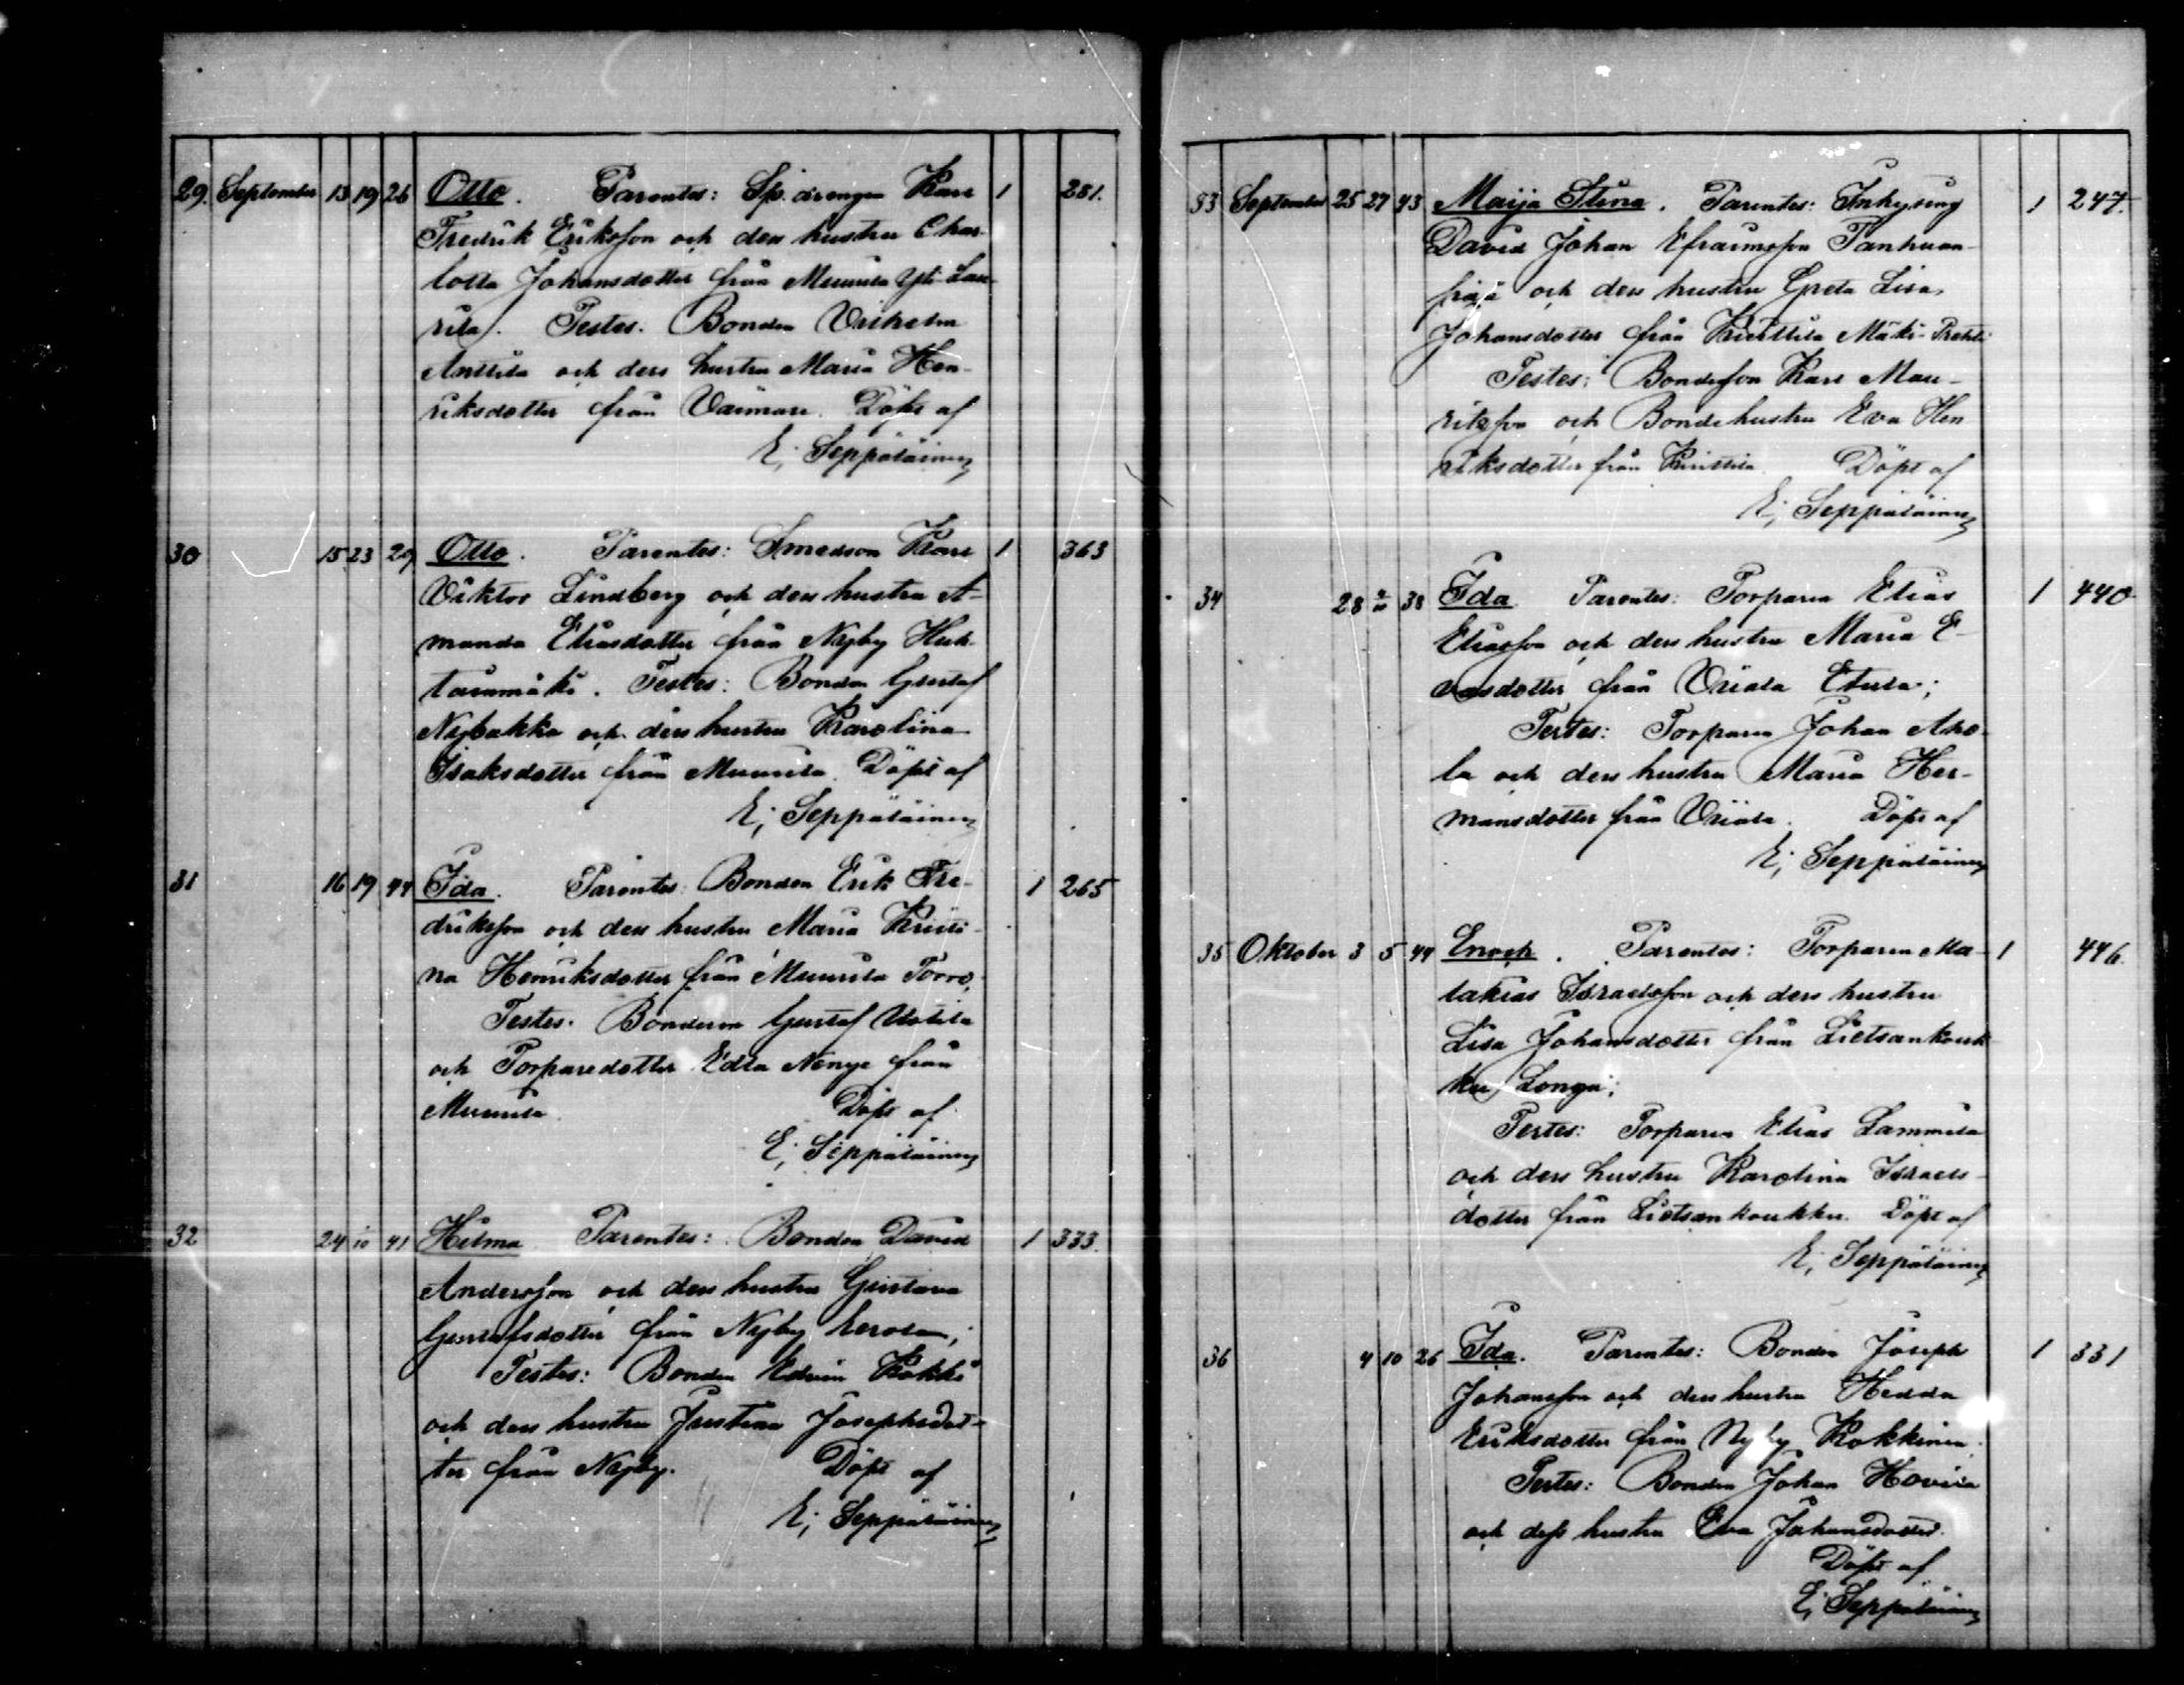 29. September 13 19 26 Otto. Parentes: Sp. drengen Karl 1 281.
Fredrik Eriksson och dess hustru Char-
lotta Johansdotter från Muurila Yli-Lau-
rila. Testes: Bonden Vilhelm
Anttila och dess hustru Maria Hen-
riksdotter från Väimare. Döpt af
E; Seppäläinen
30 15 23 29 Otto. Parentes: Smedson Karl 1 363
Viktor Lindberg och dess hustru A-
manda Eliasdotter från Nyby Huh-
taimäki. Testes: Bonden Gustaf
Nybakka och dess hustru Karolina
Isaksdotter från Muurila. Döpt af
E; Seppäläinen
31 16 19 44 Ida. Parentes: Bonden Erik Fre- 1 265
driksson och dess hustru Maria Kristi-
na Henriksdotter från Muurila Torro.
Testes: Bondeson Gustaf Uotila
och Torparedotter Edla Nenye från
Muurila. Döpt af
E; Seppäläinen
32 24 10 41 Hilma Parentes: Bonden David 1 333.
Andersson och dess hustru Gustava
Gustafsdotter från Nyby Eerola;
Testes: Bonden Edvin Kokki
och dess hustru Justina Josephsdot-
ter från Nyby. Döpt af
E; Seppäläinen
33 September 25 27 43 Maija Stina. Parentes: Inhysing 1 247.
David Johan Efraimsson Tanhuan-
pää och dess hustru Greta Lisa
Johansdotter från Kurittila Mäki-Prehti
Testes: Bondesson Karl Mau-
ritzson och Bondehustru Eva Hen
riksdotter från Kurittila. Döpt af
E; Seppäläinen
34 28 2/10 38 Ida Parentes: Torparen Elias 1 440
Eliasson och dess hustru Maria E-
vasdotter från Viiala Etula;
Testes: Torparen Johan Aho-
la och dess hustru Maria Her-
mansdotter från Viiala. Döpt af
E; Seppäläinen
35 Oktober 3 5 44 Enoch. Parentes: Torparen Ma- 1 446.
lakias Israelsson och dess hustru
Lisa Johansdotter från Lietsankouk
ku Longa;
Testes: Torparen Elias Lammila
och dess hustru Karolina Israels-
dotter från Lietsankoukku. Döpt af
E; Seppäläinen
36 4 10 26 Ida. Parentes: Bonden Joseph 1 331
Johansson och dess hustru Hedda
Eriksdotter från Nyby Kokkinen.
Testes: Bonden Johan Hoviia
och dess hustru Eva Johansdotter.
Döpt af
E; Seppäläinen